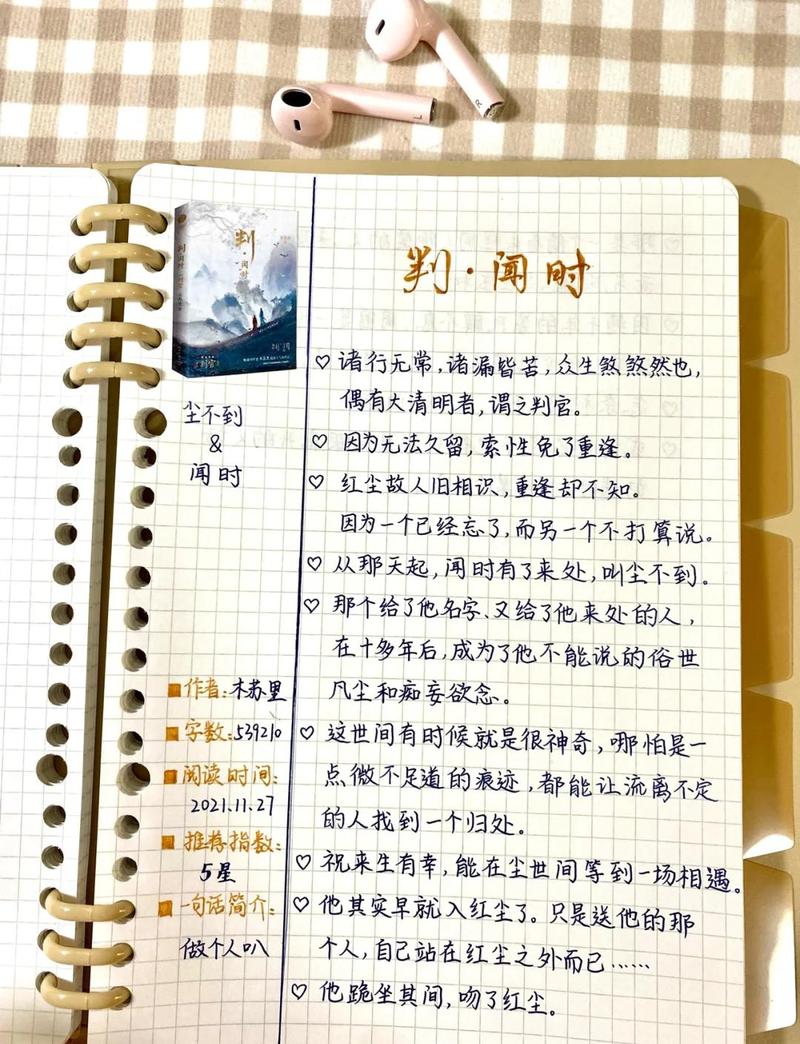 判·闻时
判
闻时
尘不到
&
闻时
作者:木苏里
字数:539210
阅读时间:
2021.11.27
推荐指数:
5星
一句话简介:
做个人叭
诸行无常,诸漏皆苦,众生煞煞然也,
偶有大清明者,谓之判官。
因为无法久留,索性免了重逢。
红尘故人旧相识,重逢却不知。
因为一个已经忘了,而另一个不打算说。
从那天起,闻时有了来处,叫尘不到。
那个给了他名字、又给了他来处的人,
在十多年后,成为了他不能说的俗世
凡尘和痴妄欲念。
这世间有时候就是很神奇,哪怕是一
点微不足道的痕迹,都能让流离不定
的人找到一个归处。
祝来生有幸,能在尘世间等到一场相遇。
他其实早就入红尘了。只是送他的那
个人,自己站在红尘之外而已……
他跪坐其间,吻了红尘。
L
R